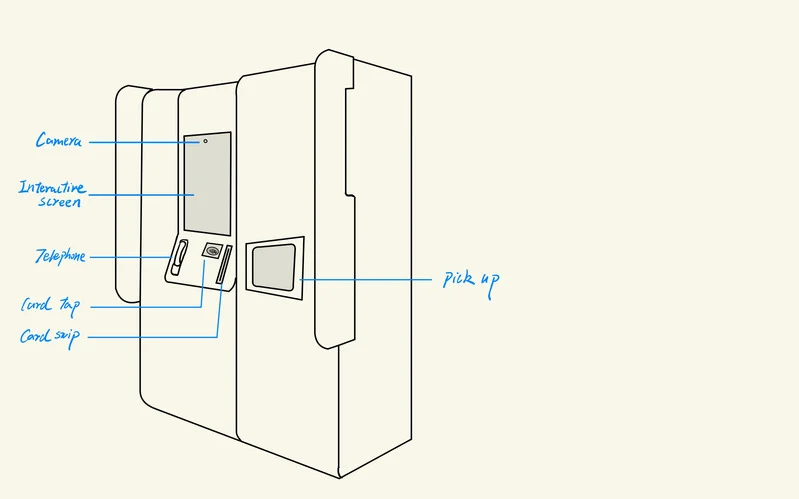 Camera
Interactive
screen
Telephone
Card tap
Card swip
pick up